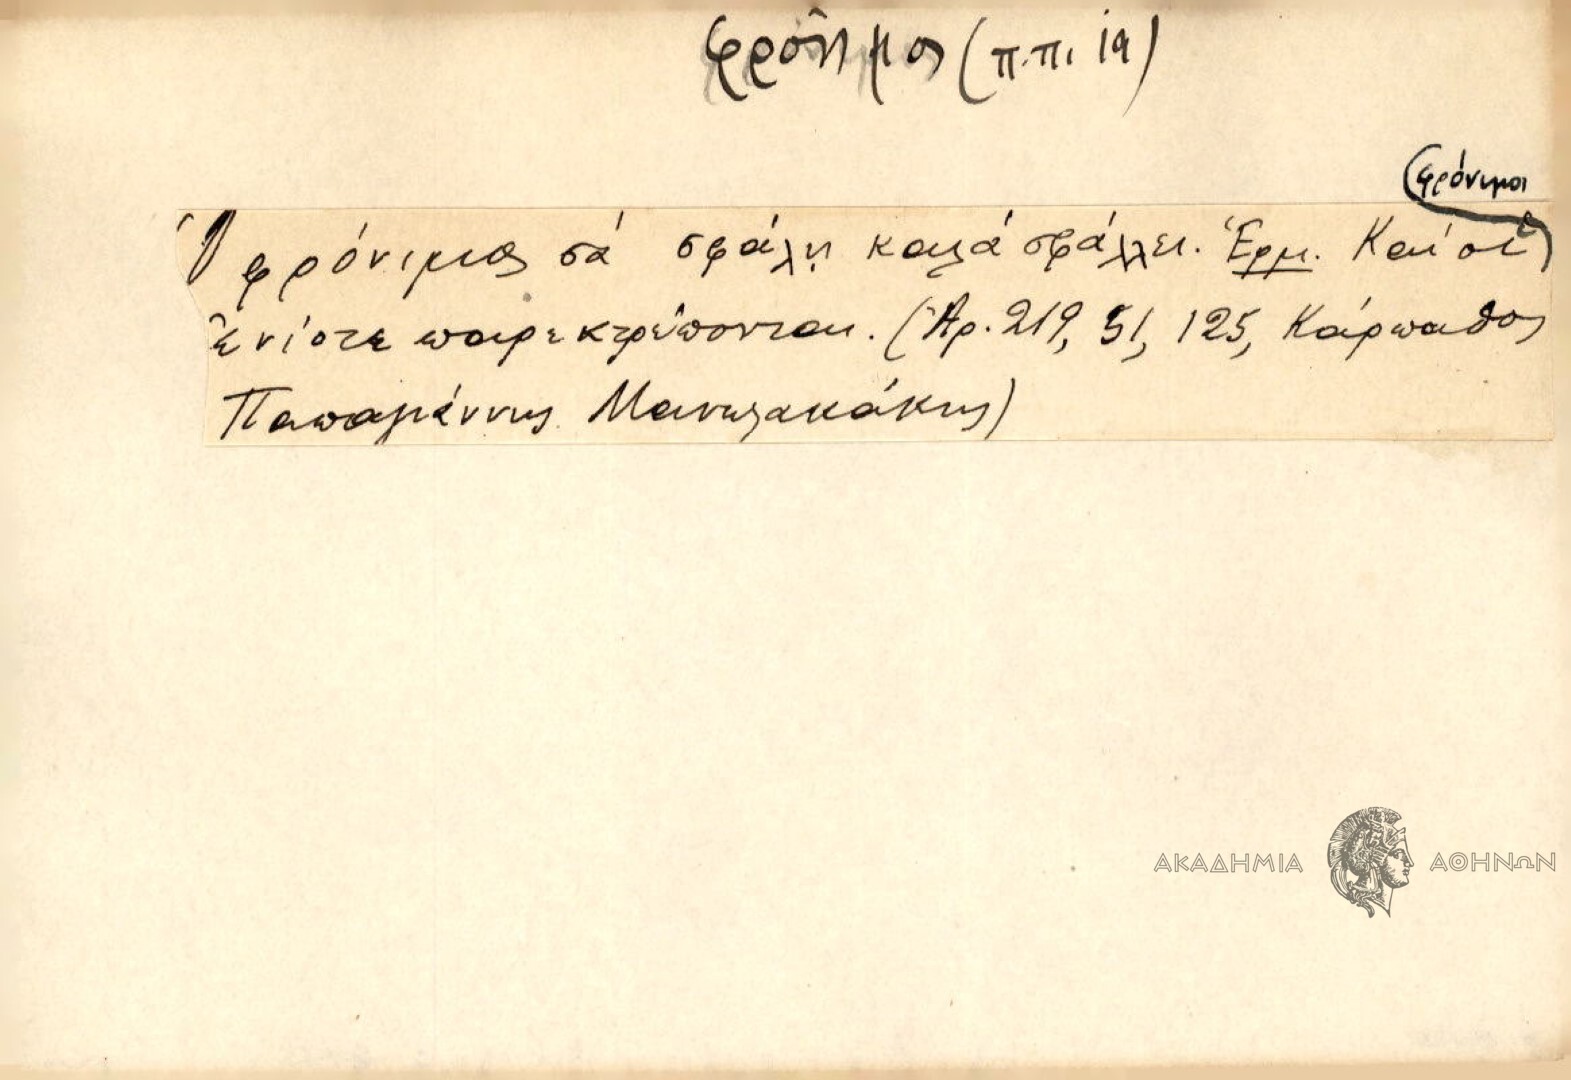 φρόνιμος (π.π. ια)
φρόνιμοι
Ὁ φρόνιμος σὰ σφάλῃ καλὰ σφάλλει. Ἑρμ. Καὶ οἱ
ἐνίοτε παρεκτρέπονται. (Ἀρ. 219, 51, 125, Κάρπαθος
Παπαγιάννης Μανωλακάκης)
ΑΚΑΔΗΜΙΑ ΑΘΗΝΩΝ